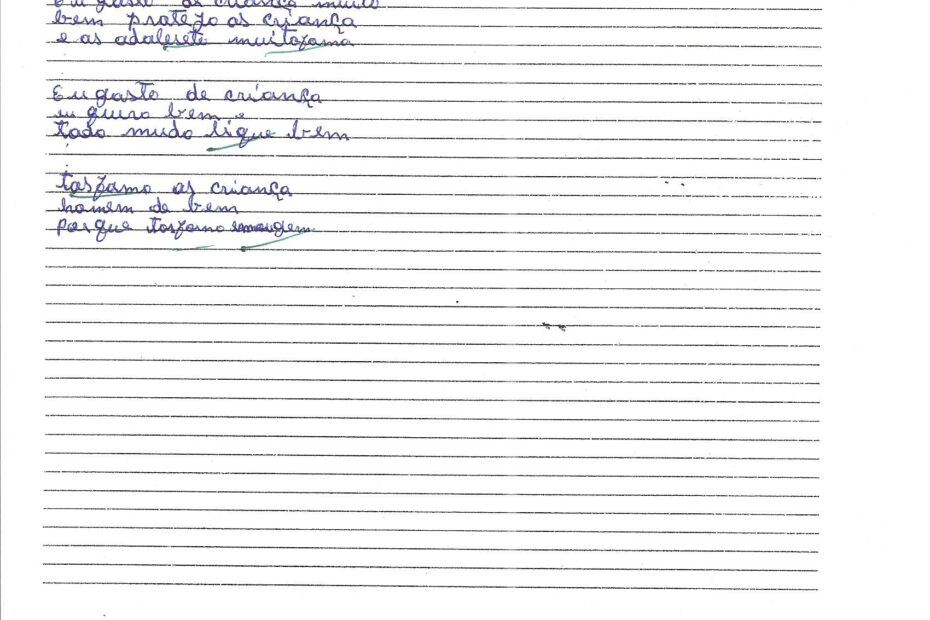 Eu gosto as criança muito
bem protejo as criança
e as adalesete muitofama
Eu gosto de criança
eu quiro bem e
todo mudo lique bem
tosfamo as criança
homem de bem
porque tosfomo